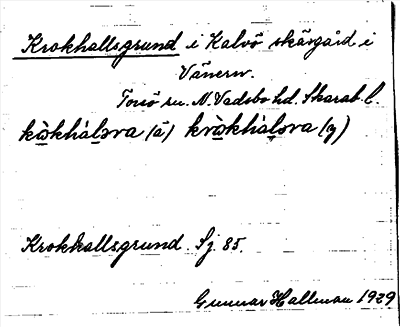 Krokhallsgrund i Kalvö skärgård i
Vänern.
Torsö sn. N. Vadsbo hd. Skarab. l.
kròkhàlsva (ä) kròkhàlsva (y)
Krokhallsgrund. Sj. 85.
Gunnar Hallman 1929